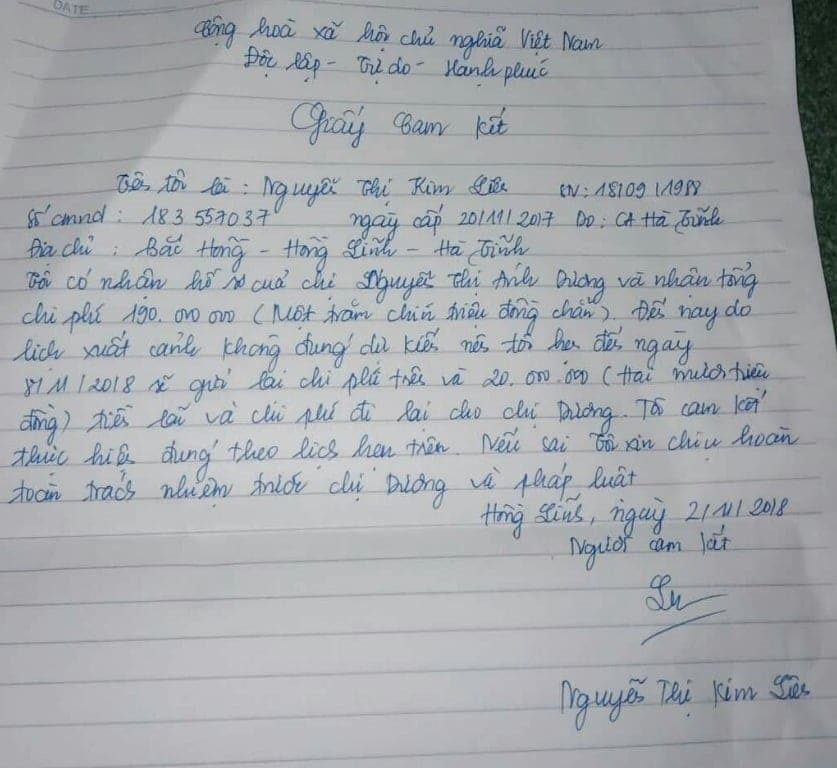 DATE
Cộng hoà xã hội chủ nghĩa Việt Nam
Độc lập - Tự do - Hạnh phúc
Giấy Cam kết
Tên tôi là : Nguyễn Thị Kim Liên SN : 18/09/1988
Số cmnd : 183 557037 ngày cấp 20/11/2017 Do : CA Hà Tĩnh
Địa chỉ : Bắc Hồng - Hồng Lĩnh - Hà Tĩnh
Tôi có nhận hồ sơ của chị Nguyễn Thị Ánh Dương và nhận tổng
chi phí 190.000.000 (Một trăm chín triệu đồng chẵn). Đến nay do
lịch xuất cảnh không đúng dự kiến nên tôi hẹn đến ngày
8/11/2018 sẽ gửi lại chi phí trên và 20.000.000 (Hai mươi triệu
đồng) tiền lãi và chi phí đi lại cho chị Dương. Tôi cam kết
thực hiện đúng theo lịch hẹn trên. Nếu sai tôi xin chịu hoàn
toàn trách nhiệm trước chị Dương và pháp luật
Hồng Lĩnh, ngày 2/11/2018
Người cam kết
Nguyễn Thị Kim Liên